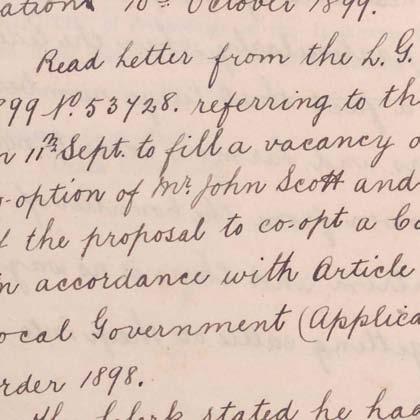 10th October 1899.
Read Letter from the L. G.
899 No. 53728. referring to th
n 11th Sept. to fill a vacancy o
o-option of Mr. John Scott and
f the proposal to co-opt a Co
in accordance with Article
ocal Government (Applica
rder 1898.
clerk stated he had